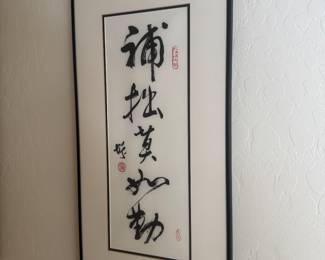 補拙莫如勤